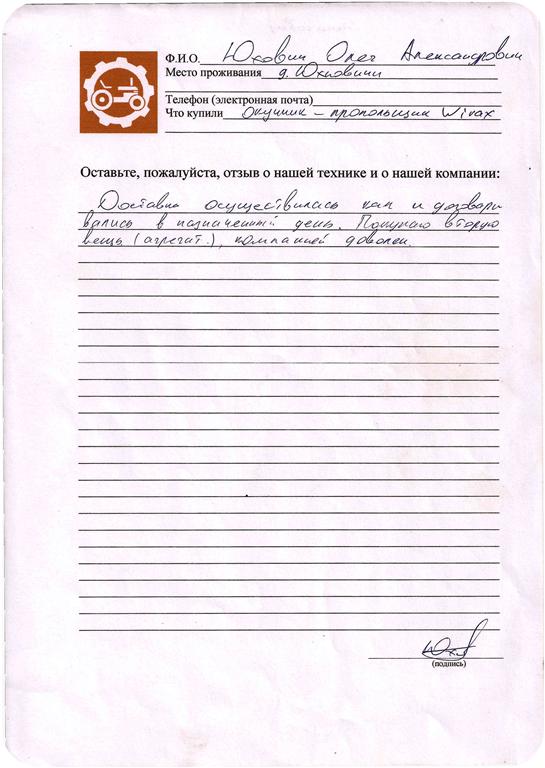 Ф.И.О. Юхович Олег Александрович
Место проживания д. Юхновичи
Телефон (электронная почта)
Что купили Окучник – пропольщик Wirax
Оставьте, пожалуйста, отзыв о нашей технике и о нашей компании:
Доставка осуществилась как и договари
вались в назначенный день. Покупаю вторую
вещь (агрегат.), компанией доволен.
(подпись)